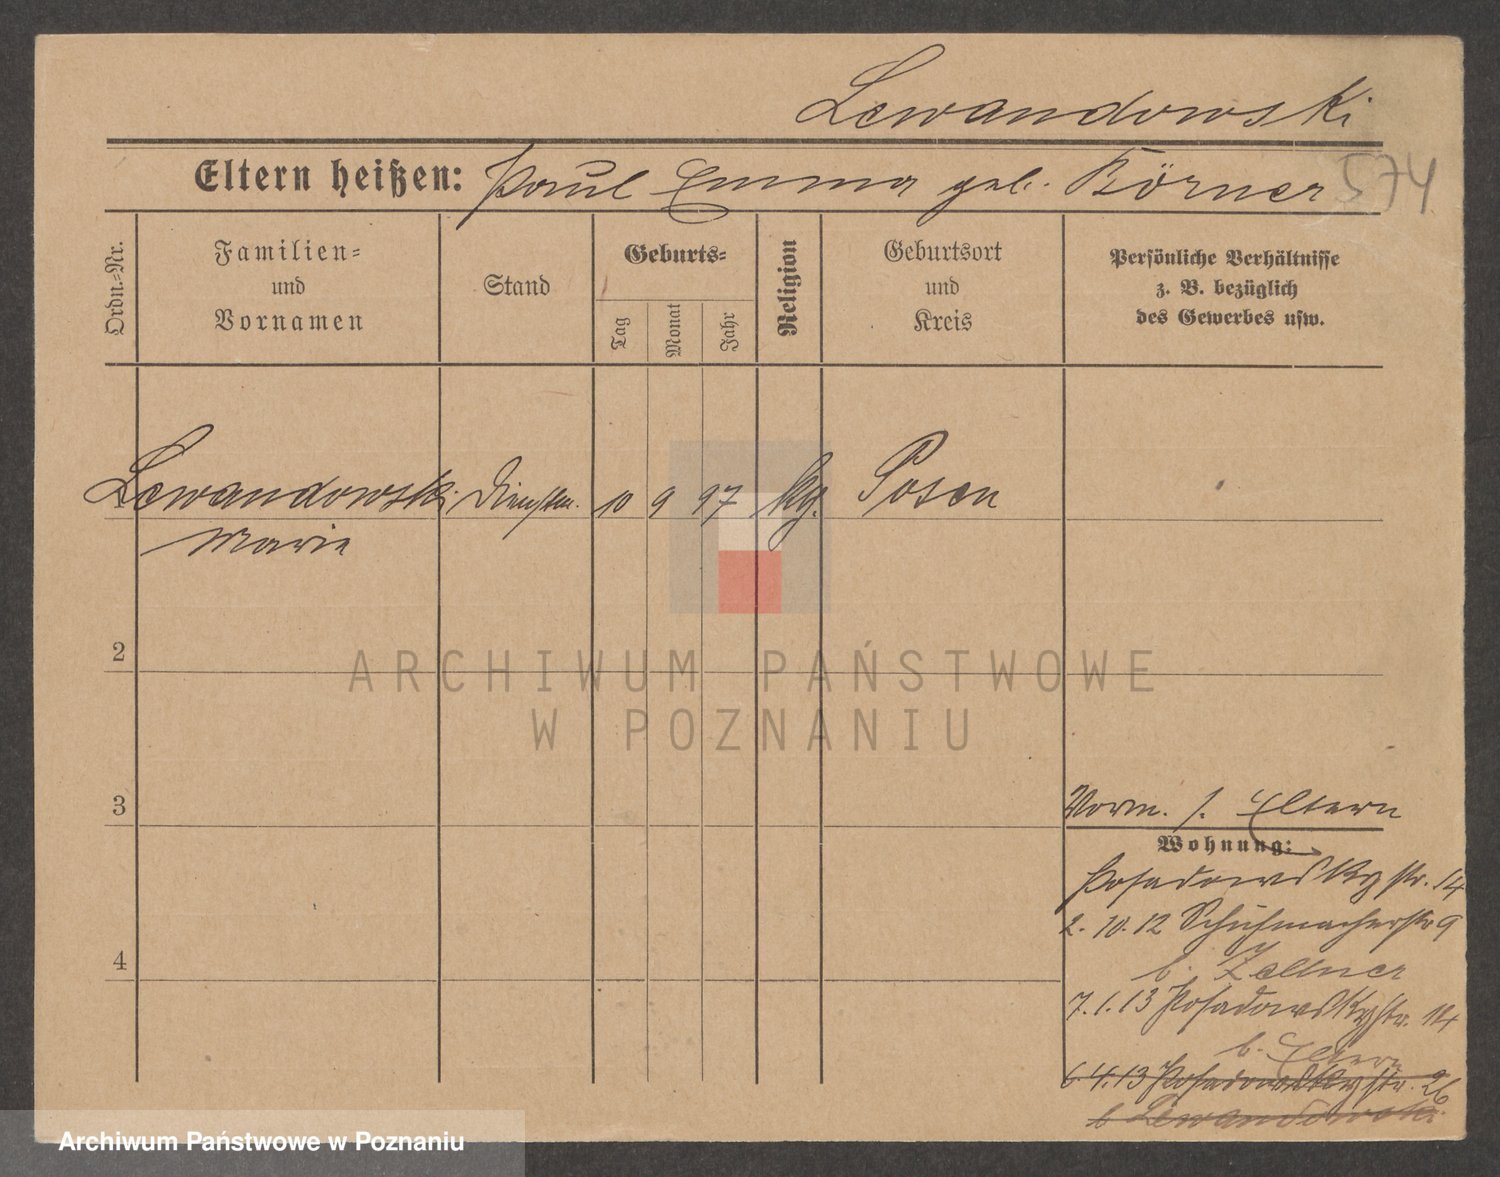 Lewandowski
Eltern heißen: Paul Emma geb. Börner 574
Ordn.=Nr.
Familien=
und
Vornamen
Stand
Geburts=
Tag
Monat
Jahr
Religion
Geburtsort
und
Kreis
Persönliche Verhältnisse
z. B. bezüglich
des Gewerbes usw.
1 Lewandowski Dienstm. 10 9 97 kg. Posen
Marie
2
3
4
ARCHIWUM PAŃSTWOWE
W POZNANIU
Vorm. s. Eltern
Wohnung:
Posadowskystr. 14
2.10.12 Schuhmacherstr 9
b. Zellner
7.1.13 Posadowskystr. 14
b. Eltern
6.4.13 Posadowskystr. 26
b Lewandowski
Archiwum Państwowe w Poznaniu